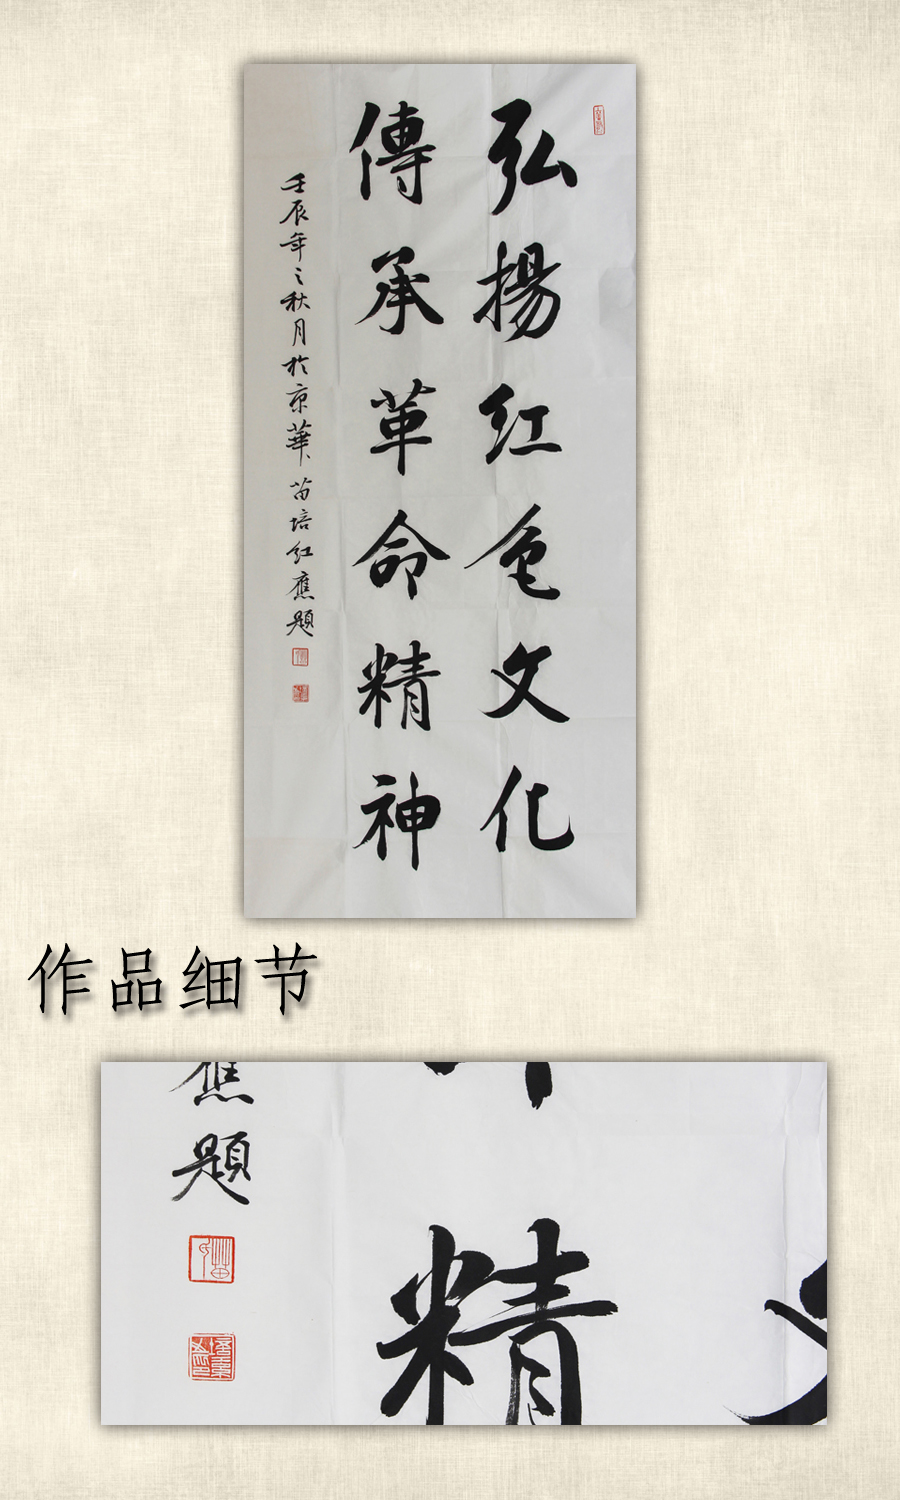 弘揚红色文化
傳承革命精神
壬辰年之秋月於京華苗培红應題
作品细节
應題
精